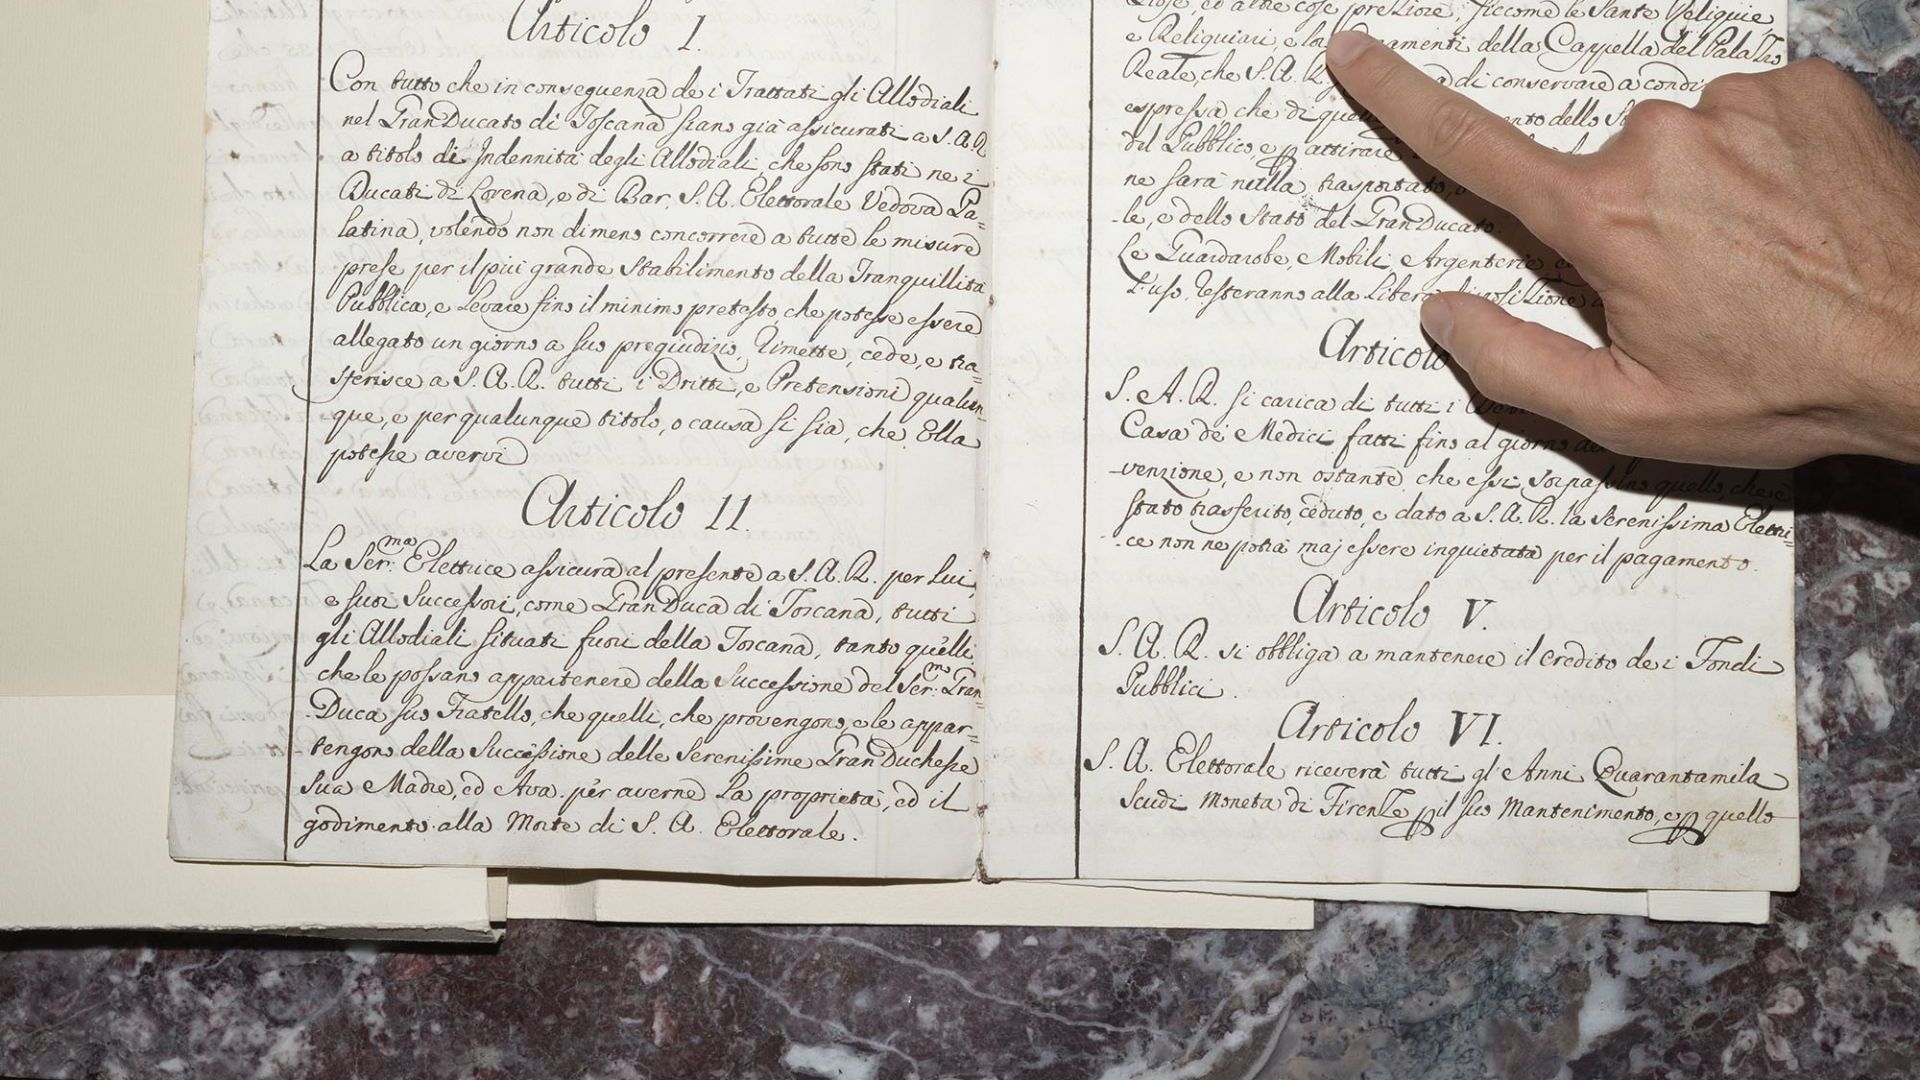 Articolo I.
Con tutto che in conseguenza de i Trattati gli Allodiali
nel GranDucato di Toscana siano già assicurati a S. A. R.
a titolo di Indennità degli Allodiali, che sono stati ne i
Ducati di Lorena, e di Bar, S. A. Elettorale Vedova Pa=
latina, volendo non dimeno concorrere a tutte le misure
prese per il più grande Stabilimento della Tranquillità
Pubblica, e Levare fino il minimo pretesto, che potesse essere
allegato un giorno a suo pregiudizio, Rimette, cede, e tra=
sferisce a S. A. R. tutti i Dritti, e Pretensioni qualun=
que, e per qualunque titolo, o causa si sia, che Ella
potesse avervi
Articolo II.
La Ser:ma Elettrice assicura al presente a S. A. R. per Lui,
e suoi Successori, come GranDuca di Toscana, tutti
gli Allodiali situati fuori della Toscana, tanto quelli
che le possano appartenere della Successione del Ser:mo Gran
Duca suo Fratello, che quelli, che provengono, e le appar=
tengono della Successione delle Serenissime GranDuchesse
sua Madre, ed Ava per averne la proprietà, ed il
godimento alla Morte di S. A. Elettorale.
ed altre cose preziose, siccome le Sante Reliquie,
e Reliquiari, e loro della Cappella del Palazzo
Reale, che S. A. R. di conservare a condi
espressa che di dello
del Pubblico, e p attirare
ne sarà nulla trasportato,
le, e dello Stato del GranDucato.
Le Guardarobe, Mobili, Argenterie
L'uso, resteranno alla Libera disposizione
Articolo
S. A. R. si carica di tutti i
Casa de Medici fatti fino al giorno
venzione, e non ostante che essi sorpassino quello, che è
stato trasferito, ceduto, e dato a S. A. R. la Serenissima Elettri=
ce non ne potrà maj essere inquietata per il pagamento.
Articolo V.
S. A. R. si obbliga a mantenere il credito de i Fondi
Pubblici.
Articolo VI.
S. A. Elettorale riceverà tutti gl' Anni Quarantamila
Scudi Moneta di Firenze p il suo Mantenimento, e p quello